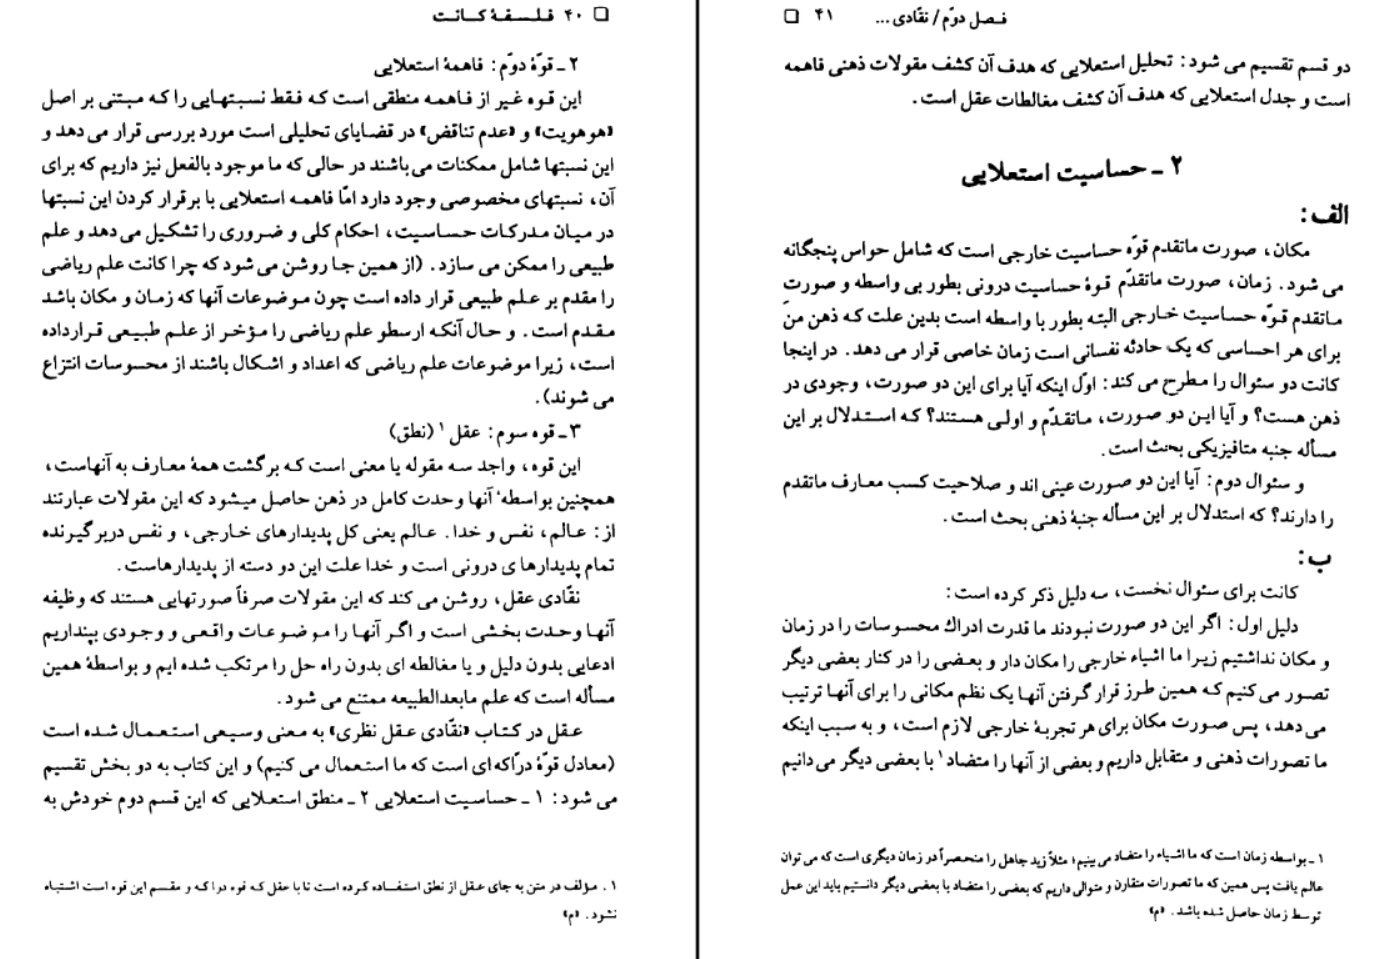 ❏ ۴۰ فلسفهٔ کانت
۲ ـ قوّهٔ دوّم: فاهمهٔ استعلایی
این قوه غیر از فاهمه منطقی است که فقط نسبتهایی را که مبتنی بر اصل
«هوهویت» و «عدم تناقض» در قضایای تحلیلی است مورد بررسی قرار می دهد و
این نسبتها شامل ممکنات می باشند در حالی که ما موجود بالفعل نیز داریم که برای
آن، نسبتهای مخصوصی وجود دارد امّا فاهمه استعلایی با برقرار کردن این نسبتها
در میان مدرکات حساسیت، احکام کلی و ضروری را تشکیل می دهد و علم
طبیعی را ممکن می سازد. (از همین جا روشن می شود که چرا کانت علم ریاضی
را مقدم بر علم طبیعی قرار داده است چون موضوعات آنها که زمان و مکان باشد
مقدم است. و حال آنکه ارسطو علم ریاضی را مؤخر از علم طبیعی قرارداده
است، زیرا موضوعات علم ریاضی که اعداد و اشکال باشند از محسوسات انتزاع
می شوند).
۳ ـ قوه سوم: عقل ۱ (نطق)
این قوه، واجد سه مقوله یا معنی است که برگشت همهٔ معارف به آنهاست،
همچنین بواسطهٔ آنها وحدت کامل در ذهن حاصل میشود که این مقولات عبارتند
از: عالم، نفس و خدا. عالم یعنی کل پدیدارهای خارجی، و نفس دربرگیرنده
تمام پدیدارها ی درونی است و خدا علت این دو دسته از پدیدارهاست.
نقّادی عقل، روشن می کند که این مقولات صرفاً صورتهایی هستند که وظیفه
آنها وحدت بخشی است و اگر آنها را موضوعات واقعی و وجودی بپنداریم
ادعایی بدون دلیل و یا مغالطه ای بدون راه حل را مرتکب شده ایم و بواسطهٔ همین
مسأله است که علم مابعدالطبیعه ممتنع می شود.
عقل در کتاب «نقّادی عقل نظری» به معنی وسیعی استعمال شده است
(معادل قوّهٔ درّاکه ای است که ما استعمال می کنیم) و این کتاب به دو بخش تقسیم
می شود: ۱ ـ حساسیت استعلایی ۲ ـ منطق استعلایی که این قسم دوم خودش به
۱ . مؤلف در متن به جای عقل از نطق استفاده کرده است تا با عقل که قوه دراکه و مقسم این قوه است اشتباه
نشود. «م»
فصل دوّم/ نقّادی ... ۴۱ ❏
دو قسم تقسیم می شود: تحلیل استعلایی که هدف آن کشف مقولات ذهنی فاهمه
است و جدل استعلایی که هدف آن کشف مغالطات عقل است.
۲ ـ حساسیت استعلایی
الف:
مکان، صورت ماتقدم قوّه حساسیت خارجی است که شامل حواس پنجگانه
می شود. زمان، صورت ماتقدّم قوهٔ حساسیت درونی بطور بی واسطه و صورت
ماتقدم قوّه حساسیت خارجی البته بطور با واسطه است بدین علت که ذهن من
برای هر احساسی که یک حادثه نفسانی است زمان خاصی قرار می دهد. در اینجا
کانت دو سئوال را مطرح می کند: اوّل اینکه آیا برای این دو صورت، وجودی در
ذهن هست؟ و آیا این دو صورت، ماتقدّم و اولی هستند؟ که استدلال بر این
مسأله جنبه متافیزیکی بحث است.
و سئوال دوم: آیا این دو صورت عینی اند و صلاحیت کسب معارف ماتقدم
را دارند؟ که استدلال بر این مسأله جنبهٔ ذهنی بحث است.
ب:
کانت برای سئوال نخست، سه دلیل ذکر کرده است:
دلیل اول: اگر این دو صورت نبودند ما قدرت ادراک محسوسات را در زمان
و مکان نداشتیم زیرا ما اشیاء خارجی را مکان دار و بعضی را در کنار بعضی دیگر
تصور می کنیم که همین طرز قرار گرفتن آنها یک نظم مکانی را برای آنها ترتیب
می دهد، پس صورت مکان برای هر تجربهٔ خارجی لازم است، و به سبب اینکه
ما تصورات ذهنی و متقابل داریم و بعضی از آنها را متضاد ۱ با بعضی دیگر می دانیم
۱ ـ بواسطه زمان است که ما اشیاء را متضاد می بینیم؛ مثلاً زید جاهل را منحصراً در زمان دیگری است که می توان
عالم یافت پس همین که ما تصورات متقارن و متوالی داریم که بعضی را متضاد با بعضی دیگر دانستیم باید این عمل
توسط زمان حاصل شده باشد. «م»